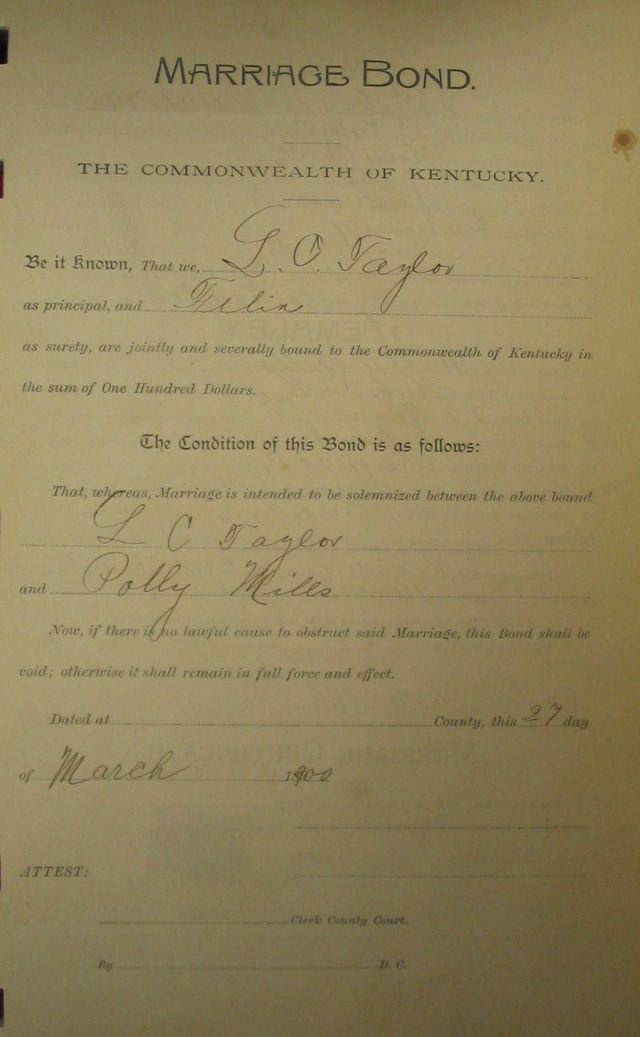 MARRIAGE BOND.
THE COMMONWEALTH OF KENTUCKY.
Be it Known, That we, L. C. Taylor
as principal, and Felix
as surety, are jointly and severally bound to the Commonwealth of Kentucky in
the sum of One Hundred Dollars.
The Condition of this Bond is as follows:
That, whereas, Marriage is intended to be solemnized between the above bound
L C Taylor
and Polly Mills
Now, if there is no lawful cause to obstruct said Marriage, this Bond shall be
void; otherwise it shall remain in full force and effect.
Dated at County, this 27 day
of March 1900
ATTEST:
Clerk County Court.
By D. C.